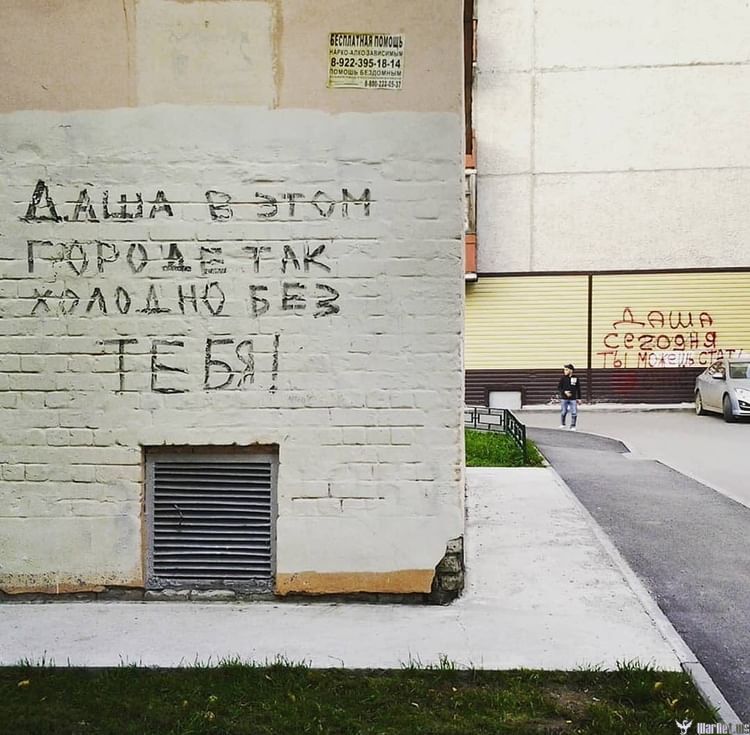 БЕСПЛАТНАЯ ПОМОЩЬ
НАРКО-АЛКОЗАВИСИМЫМ
8-922-395-18-14
ПОМОЩЬ БЕЗДОМНЫМ
8-800-222-05-37
ДАША В ЭТОМ
ГОРОДЕ ТАК
ХОЛОДНО БЕЗ
ТЕБЯ!
ДАША
СЕГОДНЯ
ТЫ МОЖЕШЬ СТАТЬ